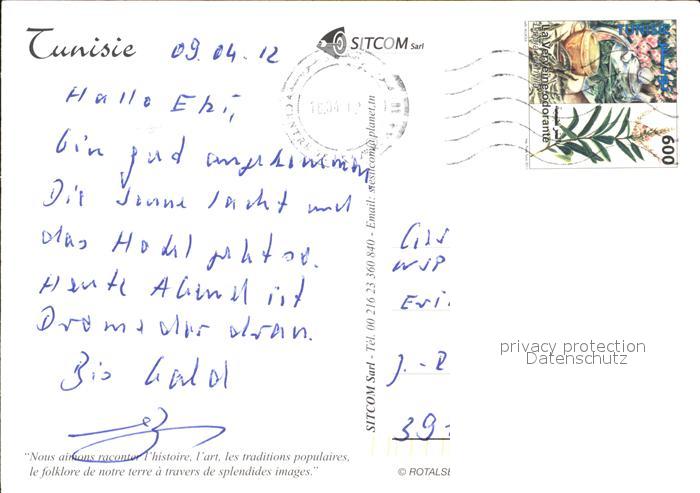 Tunisie 09.04.12
SITCOM Sarl
Hallo Eki,
bin gud angekommen
Die Sonne lacht und
das Hotel geht so.
Heute Abend ist
Drome dar dran.
Bis bald
"Nous aimons raconter l'histoire, l'art, les traditions populaires,
le folklore de notre terre à travers de splendides images."
SITCOM Sarl - Tél. 00 216 23 360 840 - Email: siesitcom@planet.tn
© ROTALSE
TUNISIE
La Verveine odorante
600
WSP
J.-
39
privacy protection
Datenschutz